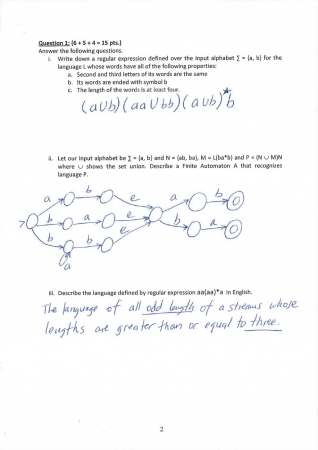 Question 1: (6 + 5 + 4 = 15 pts.)
Answer the following questions.
i. Write down a regular expression defined over the input alphabet ∑ = {a, b} for the
language L whose words have all of the following properties:
a. Second and third letters of its words are the same
b. Its words are ended with symbol b
c. The length of the words is at least four.
(a∪b)(aa∪bb)(a∪b)*b
ii. Let our input alphabet be ∑ = {a, b} and N = {ab, ba}, M = L(ba*b) and P = (N ∪ M)N
where ∪ shows the set union. Describe a Finite Automaton A that recognizes
language P.
a b e a b
b a e
b b e b a
a
iii. Describe the language defined by regular expression aa(aa)*a in English.
The language of all odd length of a streams whose
lengths are greater than or equal to three.
2